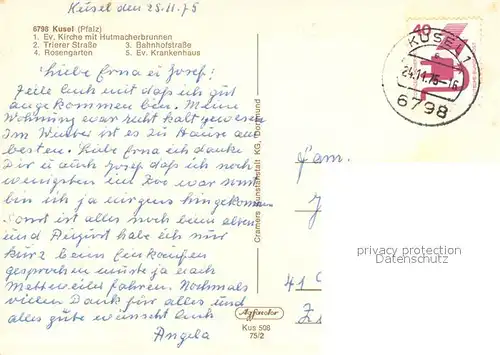 Kusel den 25.11.75
6798 Kusel (Pfalz)
1. Ev. Kirche mit Hutmacherbrunnen
2. Trierer Straße 3. Bahnhofstraße
4. Rosengarten 5. Ev. Krankenhaus
Liebe Erna u Josef!
Teile Euch mit daß ich gut
angekommen bin. Meine
Wohnung war nicht kalt gewesen
Im Winter ist es zu Hause am
besten. Liebe Erna ich danke
Dir u auch Josef daß ich noch
wenigsten im Zoo war sonst
bin ich ja nirgens hingekommen
Sonst ist alles noch beim alten
und August habe ich nur
kurz beim Einkaufen
gesprochen mußte ja nach
Mettweiler fahren. Nochmals
vielen Dank für alles und
alles gute wünscht Euch
Angela
Cramers Kunstanstalt KG, Dortmund
Agfacolor
Kus 508
75/2
40
KUSEL 1
24.11.75-16
6798
Fam.
J
41
Z
privacy protection
Datenschutz